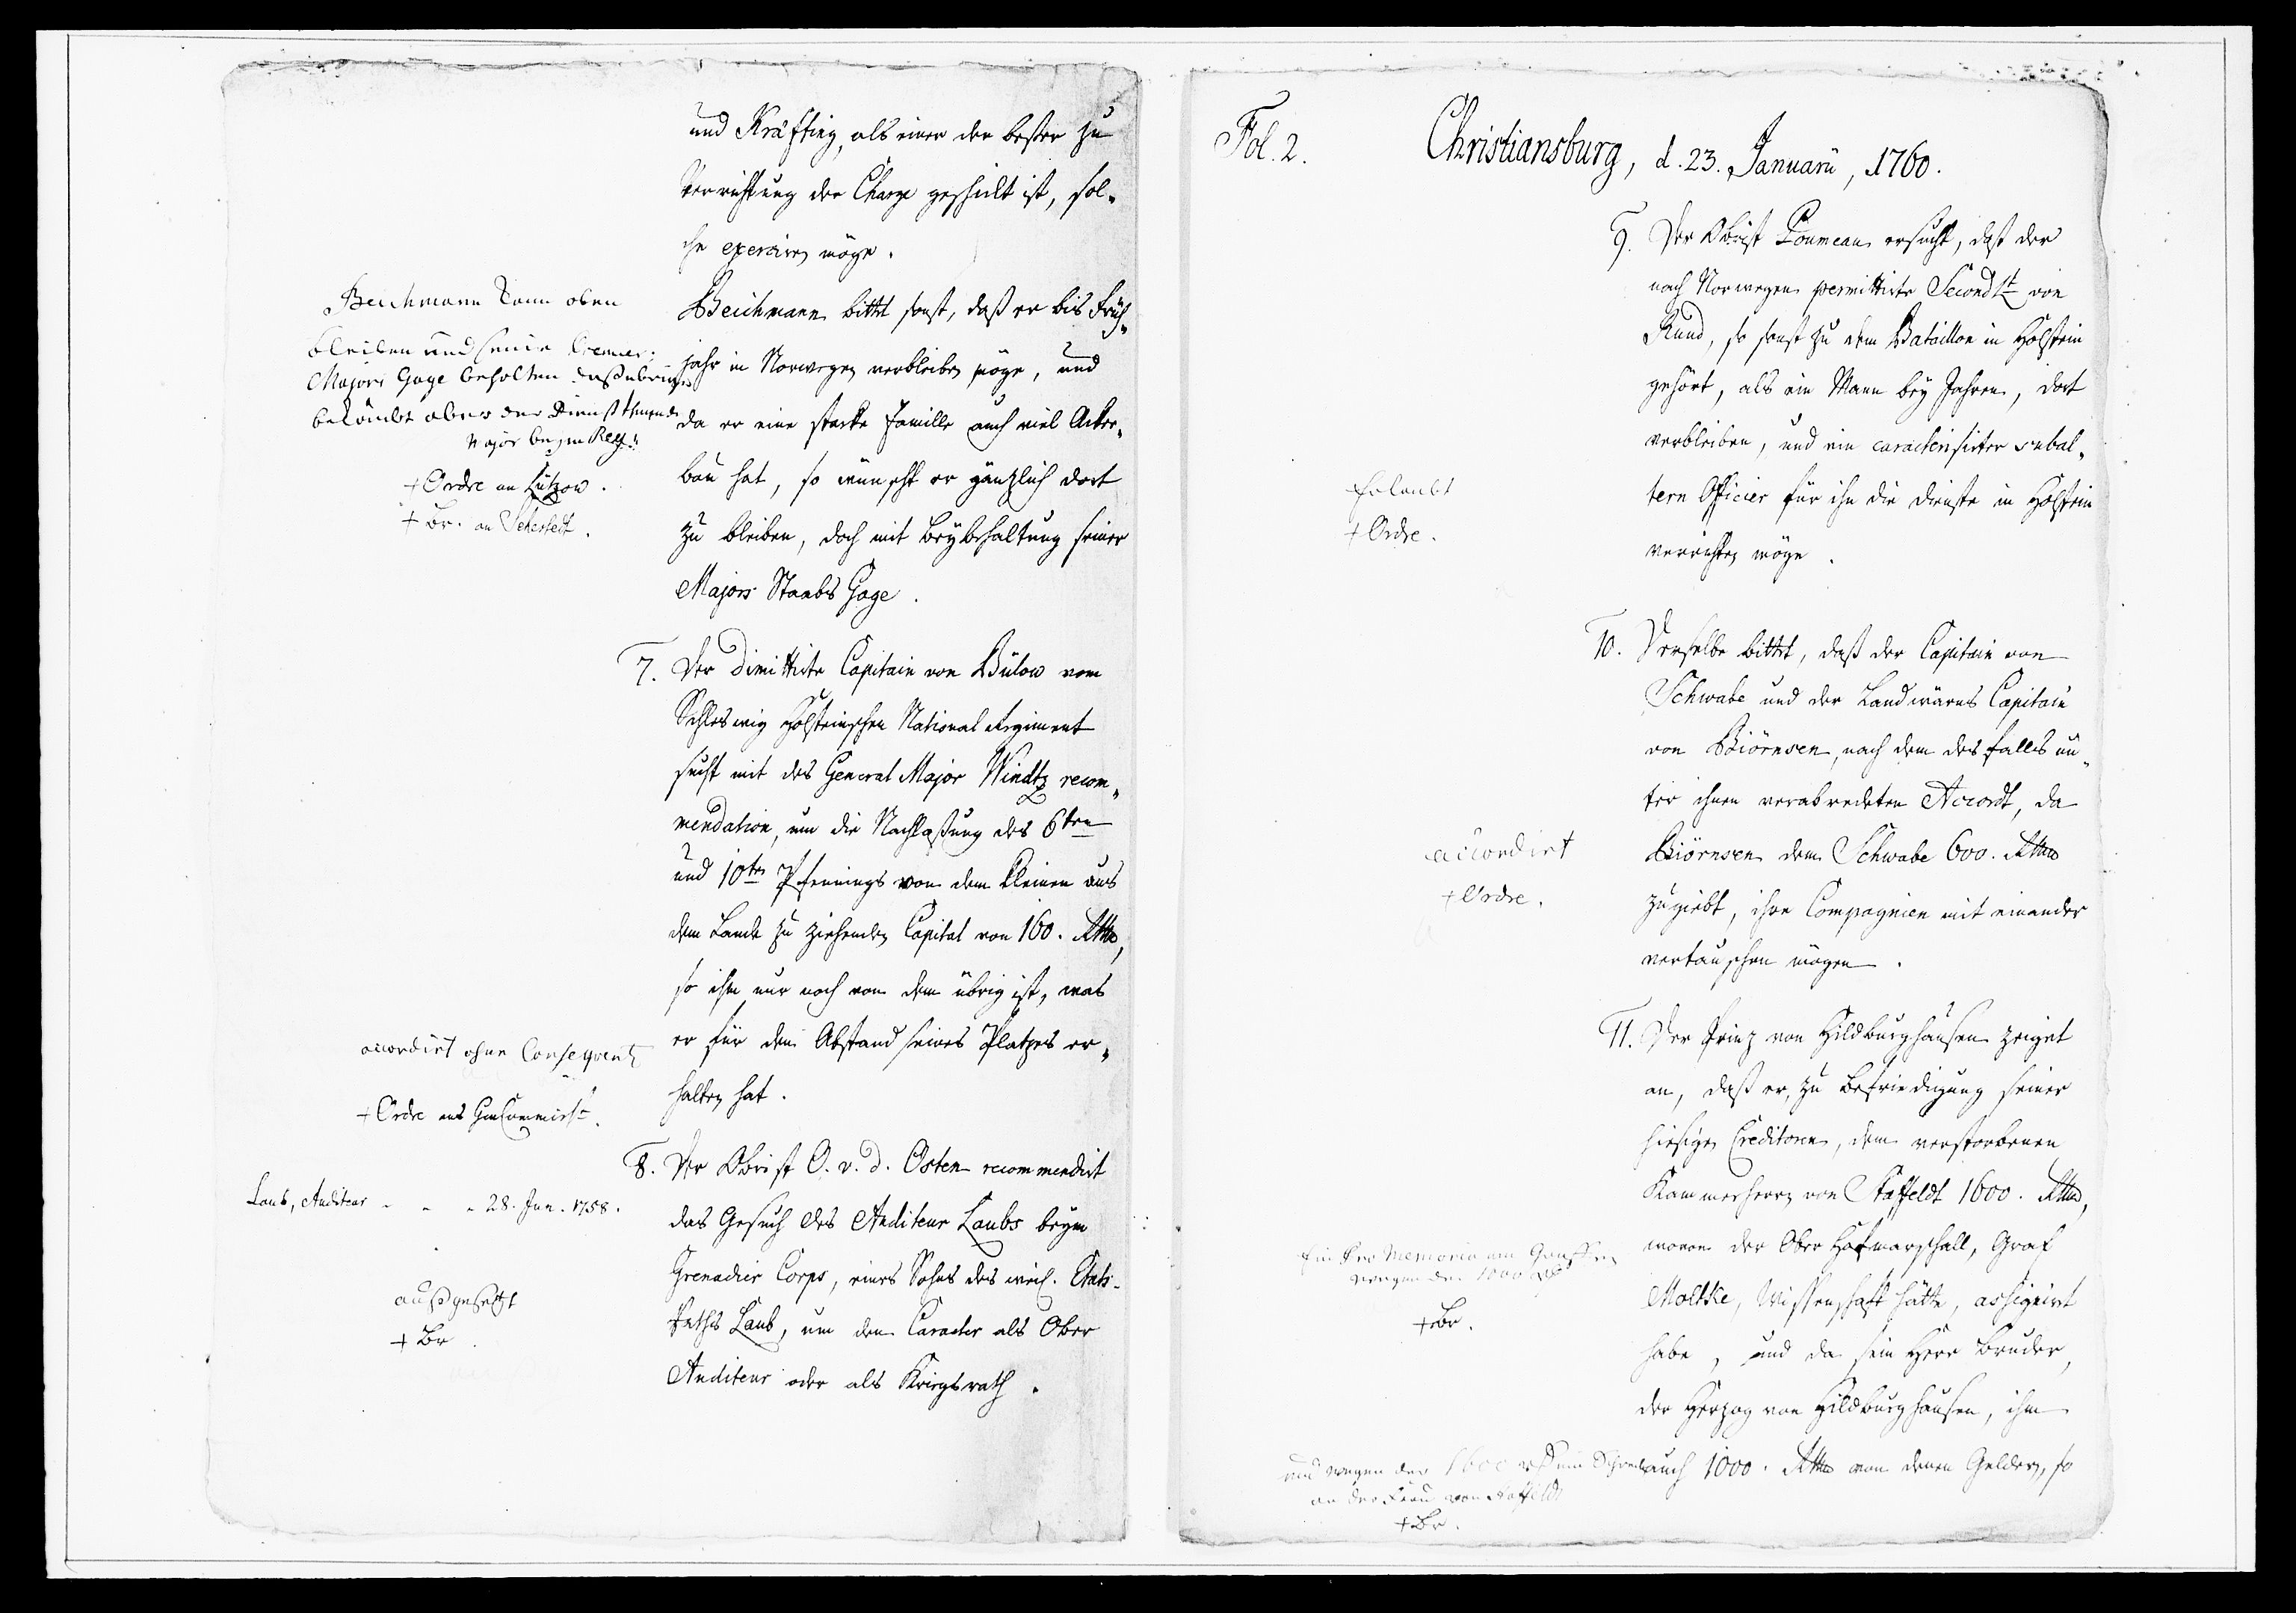 und Kräfting, als einer der besten zu
Verrichtung der Charge geschickt ist, sol-
che exerciren möge.
Beichmann kann oben
bleiben und seine Premier-
Majors Gage behalten
bekömbt aber der Dienstthuende
Major beym Reg.
+ Ordre an Lützow.
+ Br. an Sehestedt.
Beichmann bittet sonst, daß er bis Früh-
jahr in Norwegen verbleiben möge, und
da er eine starke Famille auch viel Acker-
bau hat, so wünscht er gänzlich dort
zu bleiben, doch mit Beybehaltung seiner
Majors Staabs Gage.
7. Der dimittirte Capitain von Bülow vom
Schleswig Holsteinschen National Regiment
sucht mit des General Major Windtz recom-
mendation, um die Nachlaßung des 6ten
und 10ten Pfennings von dem kleinen aus
dem Lande zu ziehenden Capital von 160. Rthlr,
so ihm nur noch von dem übrig ist, was
er für den Abstand seines Platzes er-
halten hat.
accordirt ohne Consequentz
+ Ordre ans GenCommiss.
8. Der Obrist O. v. d. Osten recommendirt
das Gesuch des Auditeur Laubs beym
Grenadier Corps, eines Sohns des weil. Etats-
Raths Laub, um den Caracter als Ober
Auditeur oder als Kriegsrath.
Laub, Auditeur - - - 28. Jun. 1758.
außgesetzt
+ Br
Fol. 2.
Christiansburg, d. 23. Januarii, 1760.
9. Der Obrist Loumeau ersucht, daß der
nach Norwegen permittirte Secondlt von
Rund, so sonst zu dem Bataillon in Holstein
gehört, als ein Mann bey Jahren, dort
verbleiben, und ein caracterisirter subal-
tern Officier für ihn die Dienste in Holstein
verrichten möge.
Erlaubt
+ Ordre.
10. Derselbe bittet, daß der Capitain von
Schwabe und der Landwärns Capitain
von Biörnsen, nach dem desfalls un-
ter ihnen verabredeten Accordt, da
Biörnsen dem Schwabe 600. Rthlr
zugiebt, ihre Compagnien mit einander
vertauschen mögen.
accordirt
+ Ordre.
11. Der Prinz von Hildburghausen zeiget
an, daß er, zu Befriedigung seiner
hiesigen Creditoren, dem verstorbenen
Kammerherrn von Staffeldt 1600. Rthlr,
wovon der Ober Hofmarschall, Graf
Moltke, Wissenschaft hätte, assignirt
habe, und da sein Herr Bruder,
der Herzog von Hildburghausen, ihm
auch 1000. Rthlr von denen Geldern, so
Ein Pro Memoria am
wegen der 1000
+ Br.
und wegen der 1600 ein Schreiben
an der Frau von Staffeldt
+ Br.